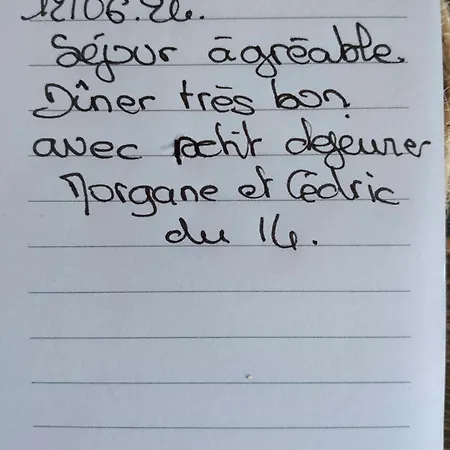 12/06.24.
Séjour agréable.
Dîner très bon
avec petit dejeuner
Morgane et Cédric
du 14.